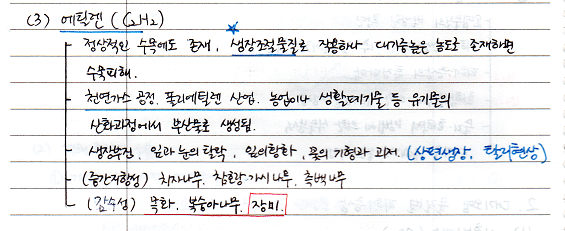 (3) 에틸렌 (C2H2)
- 정상적인 수목에도 존재, 생장조절물질로 작용하나 대기중 높은 농도로 존재하면
수목피해.
- 천연가스 공정. 폴리에틸렌 산업. 농업이나 생활폐기물 등 유기물의
산화과정에서 부산물로 생성됨.
- 생장부진, 잎과 눈의 탈락, 잎의황화, 꽃의 기형과 괴저. (상편생장, 탈리현상)
- (중간저항성) 치자나무, 참호랑가시나무, 측백나무
- (감수성) 목화. 복숭아나무. 장미.